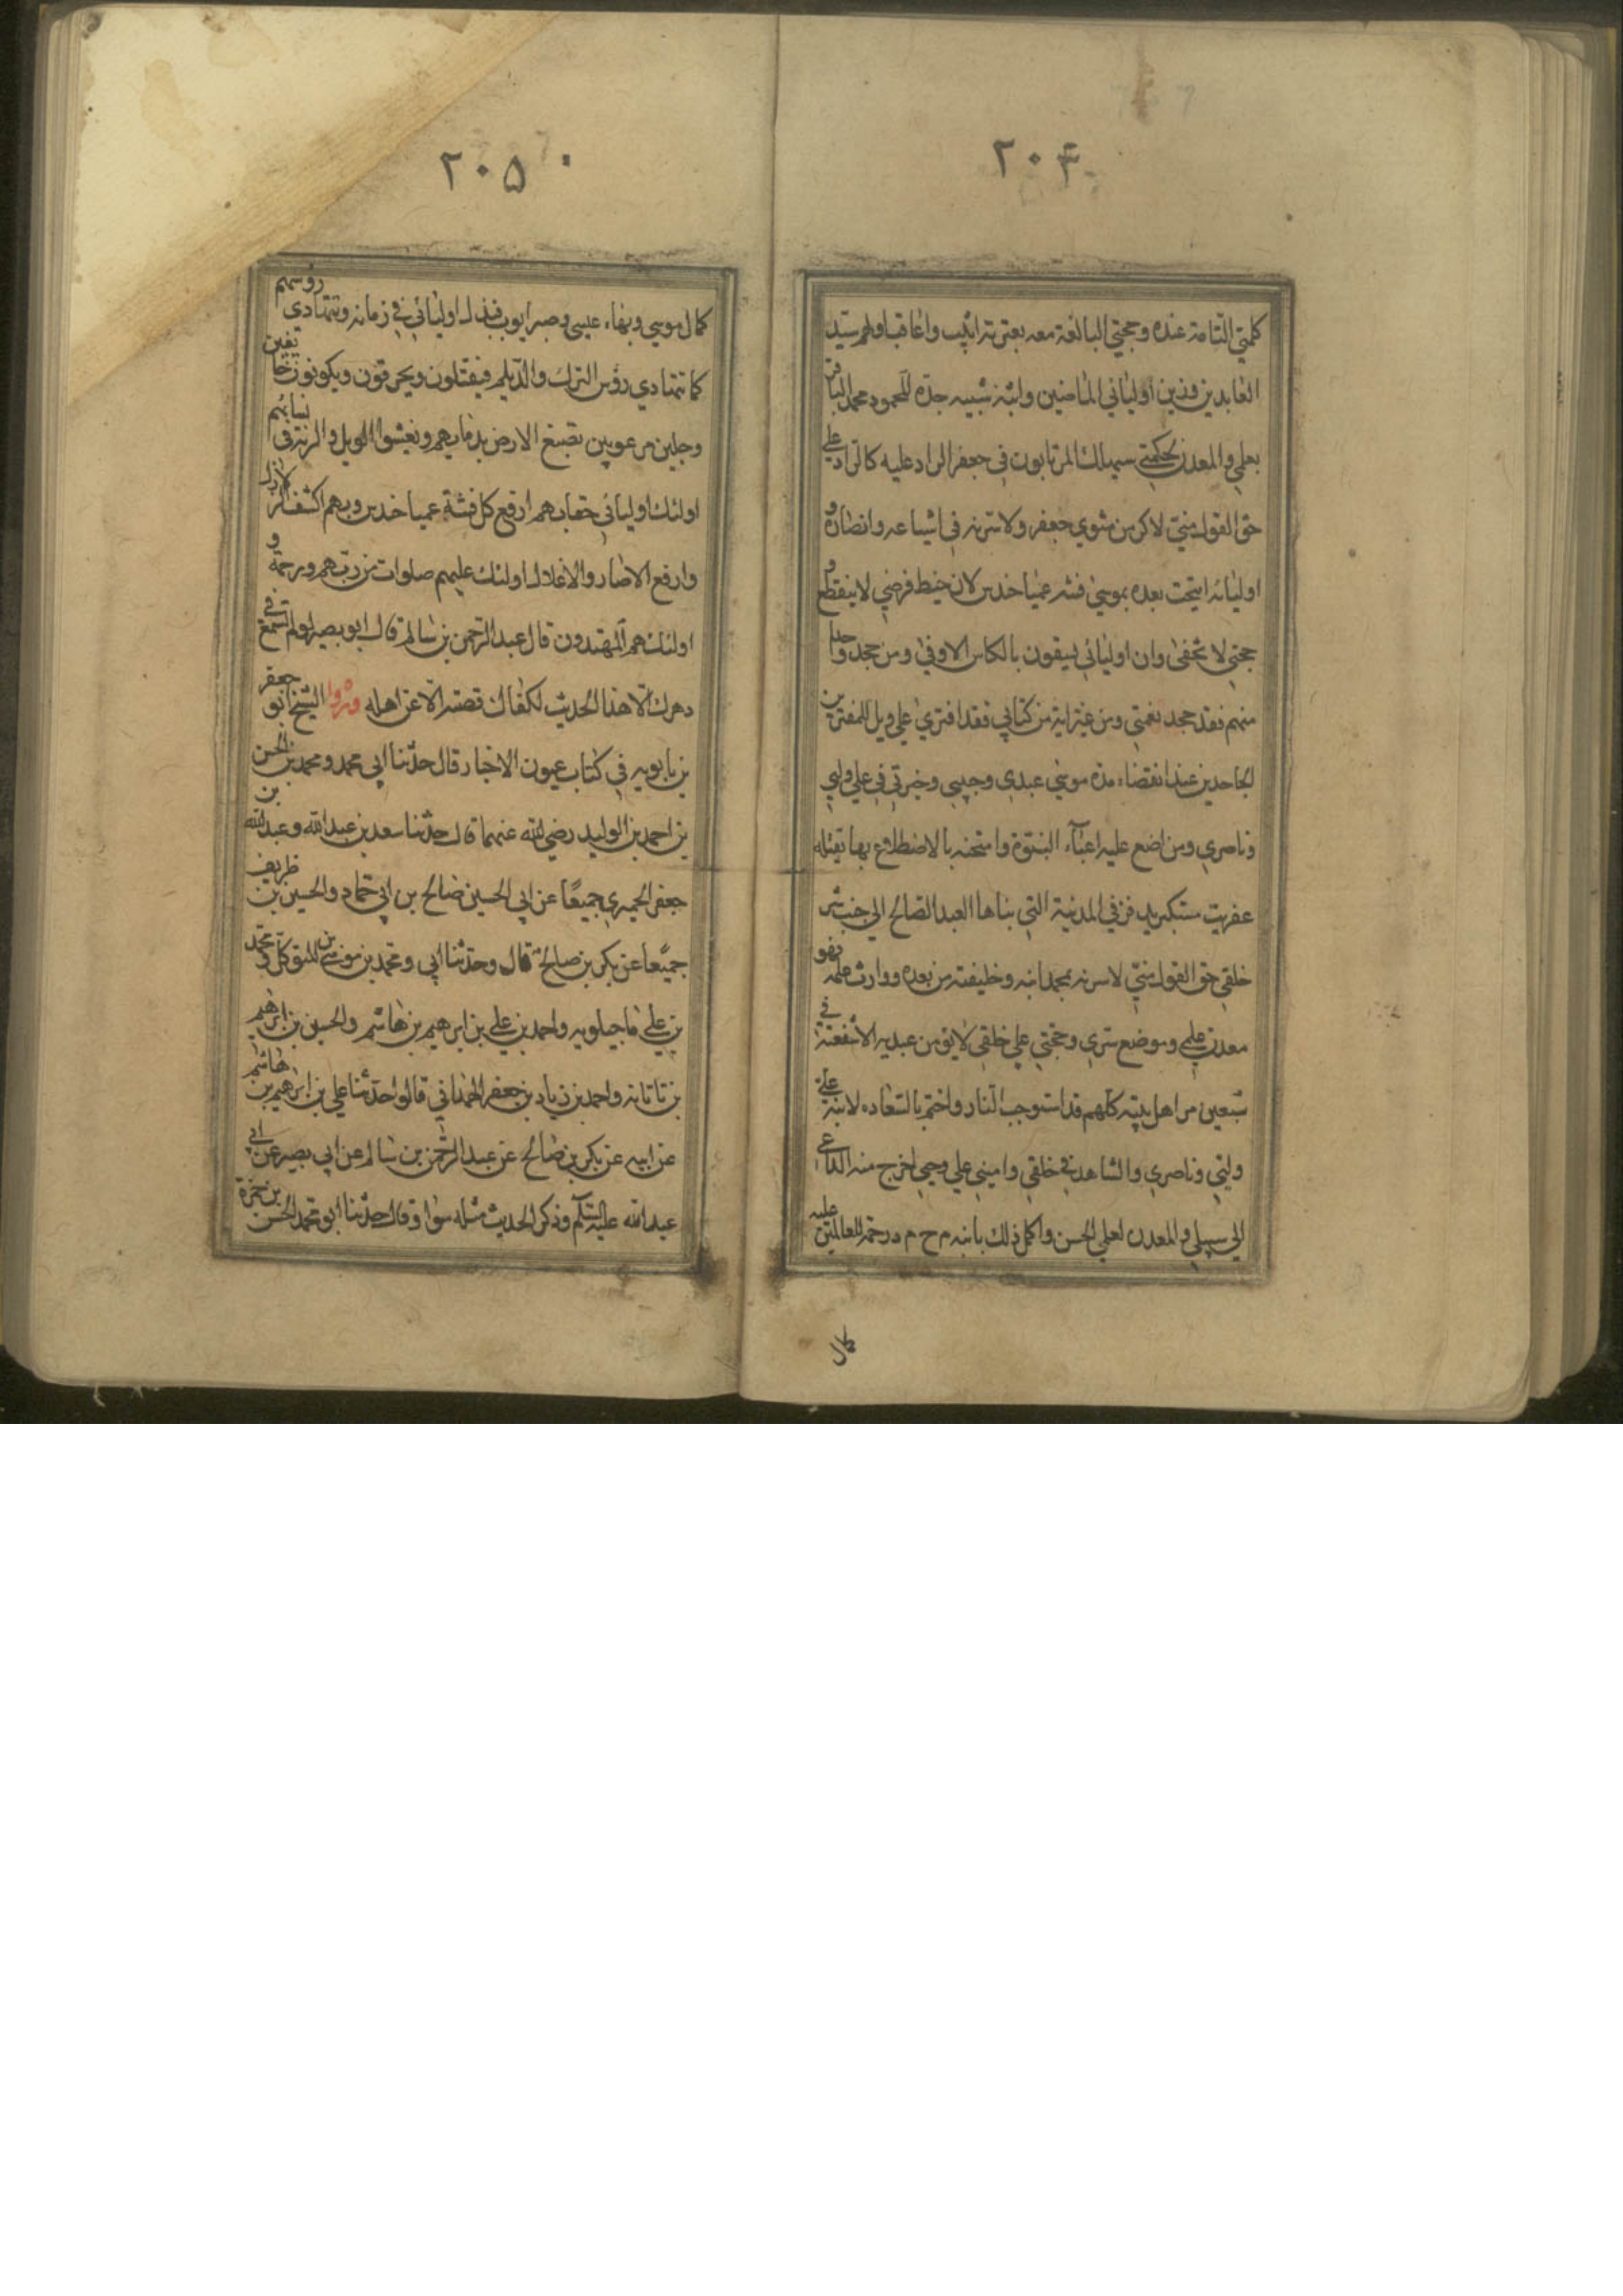 ٢٠۴
كلمتي التامة عنده وحجتي البالغة معه بعترته اثيب واعاقب اولهم سيد
العابدين وزين اوليائي الماضين وابنه شبيه جده المحمود محمد الباقر
بعلمي والمعدن لحكمتي سيهلك المرتابون في جعفر الراد عليه كالراد علي
حق القول مني لاكرمن مثوي جعفر ولاسرنه في اشياعه وانصاره و
اوليائه اتيحت بعده بموسي فتنه عمياء حندس لان خيط فرضي لا ينقطع و
حجتي لا تخفي وان اوليائي يسقون بالكاس الاوفي ومن جحد واحدا
منهم فقد جحد نعمتي ومن غير اية من كتابي فقد افتري علي ويل للمفترين
الجاحدين عند انقضاء مدة موسي عبدي وحبيبي وخيرتي في علي وليي
وناصري ومن اضع عليه اعباء النبوة وامتحنه بالاضطلاع بها يقتله
عفريت مستكبر يدفن في المدينة التي بناها العبد الصالح الي جنب شر
خلقي حق القول مني لاسرنه بمحمد ابنه وخليفته من بعده ووارث علمه فهو
معدن علمي وموضع سري وحجتي علي خلقي لا يؤمن عبد به الا شفعته في
سبعين من اهل بيته كلهم قد استوجب النار واختم بالسعاده لابنه علي
وليي وناصري والشاهد في خلقي واميني علي وحيي اخرج منه الداعي
الي سبيلي والمعدن لعلمي الحسن واكمل ذلك بابنه م ح م د رحمة للعالمين عليه
كمال
٢٠۵
كمال موسي وبهاء عيسي وصبر ايوب فيذل اوليائي في زمانه وتتهادي رؤسهم
كما تتهادي رؤس الترك والديلم فيقتلون ويحرقون ويكونون خائفين
وجلين مرعوبين تصبغ الارض بدمايهم ويغشوا الويل والرنة في نسائهم
اولئك اوليائي حقا بهم ارفع كل فتنة عمياء حندس وبهم اكشف الزلازل
وارفع الاصار والاغلال اولئك عليهم صلوات من ربهم ورحمة و
اولئك هم المهتدون قال عبد الرحمن بن سالم قال ابو بصير لو لم تسمع في
دهرك الا هذا الحديث لكفاك فصنه الا عن اهله وروا الشيخ ابو جعفر
بن بابويه في كتاب عيون الاخبار قال حدثنا ابي محمد ومحمد بن الحسن
بن احمد بن الوليد رضي الله عنهما قال حدثنا سعد بن عبد الله وعبد الله بن
جعفر الحميري جميعا عن ابي الحسين صالح بن ابي حماد والحسين بن ظريف
جميعا عن بكر بن صالح قال وحدثنا ابي ومحمد بن موسي بن المتوكل ومحمد
بن علي ماجيلويه واحمد بن علي بن ابرهيم بن هاشم والحسين بن ابرهيم
بن تاتانه واحمد بن زياد بن جعفر الهمداني قالوا حدثنا علي بن ابرهيم بن هاشم
عن ابيه عن بكر بن صالح عن عبد الرحمن بن سالم عن ابي بصير عن ابي
عبد الله عليه السلم وذكر الحديث مثله سوا وقال حدثنا ابو محمد الحسن بن حمزة